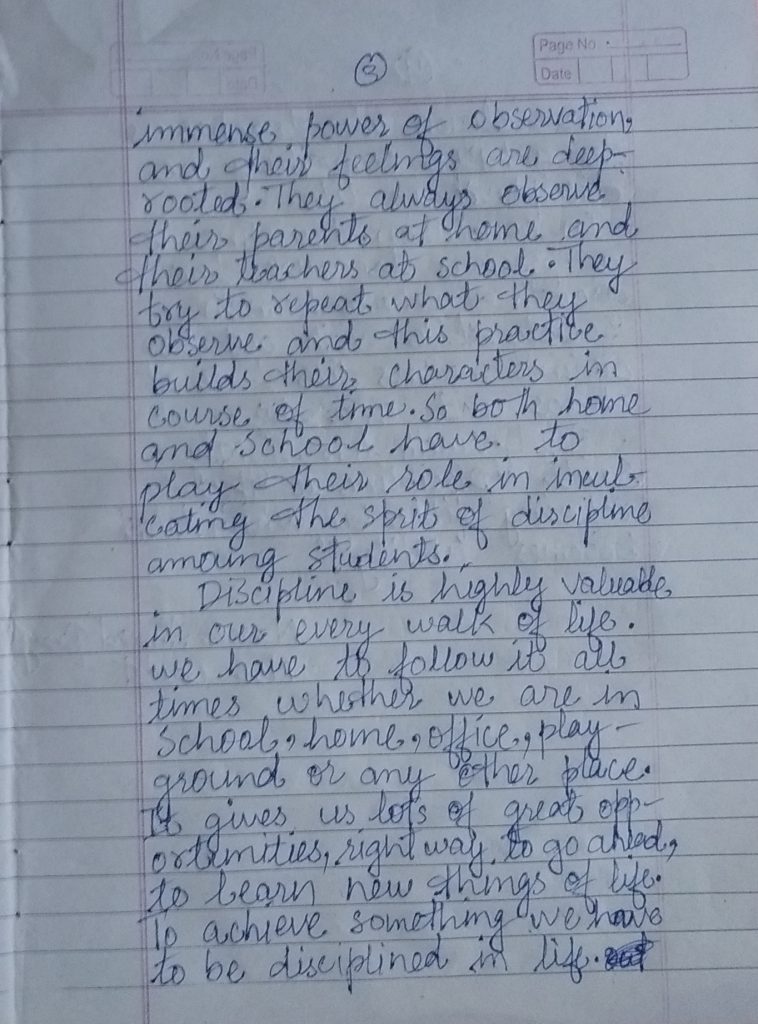 3
Page No.
Date
immense power of observation,
and their feelings are deep-
rooted. They always observe
their parents at home and
their teachers at school. They
try to repeat what they
observe and this practice
builds their characters in
course of time. So both home
and school have to
play their role in incul-
cating the sprit of discipline
amoung students.
Discipline is highly valuable
in our every walk of life.
we have to follow it all
times whether we are in
School, home, office, play-
ground or any other place.
It gives us lots of great opp-
ortunities, right way to go ahead,
to learn new things of life.
To achieve something we have
to be disciplined in life.